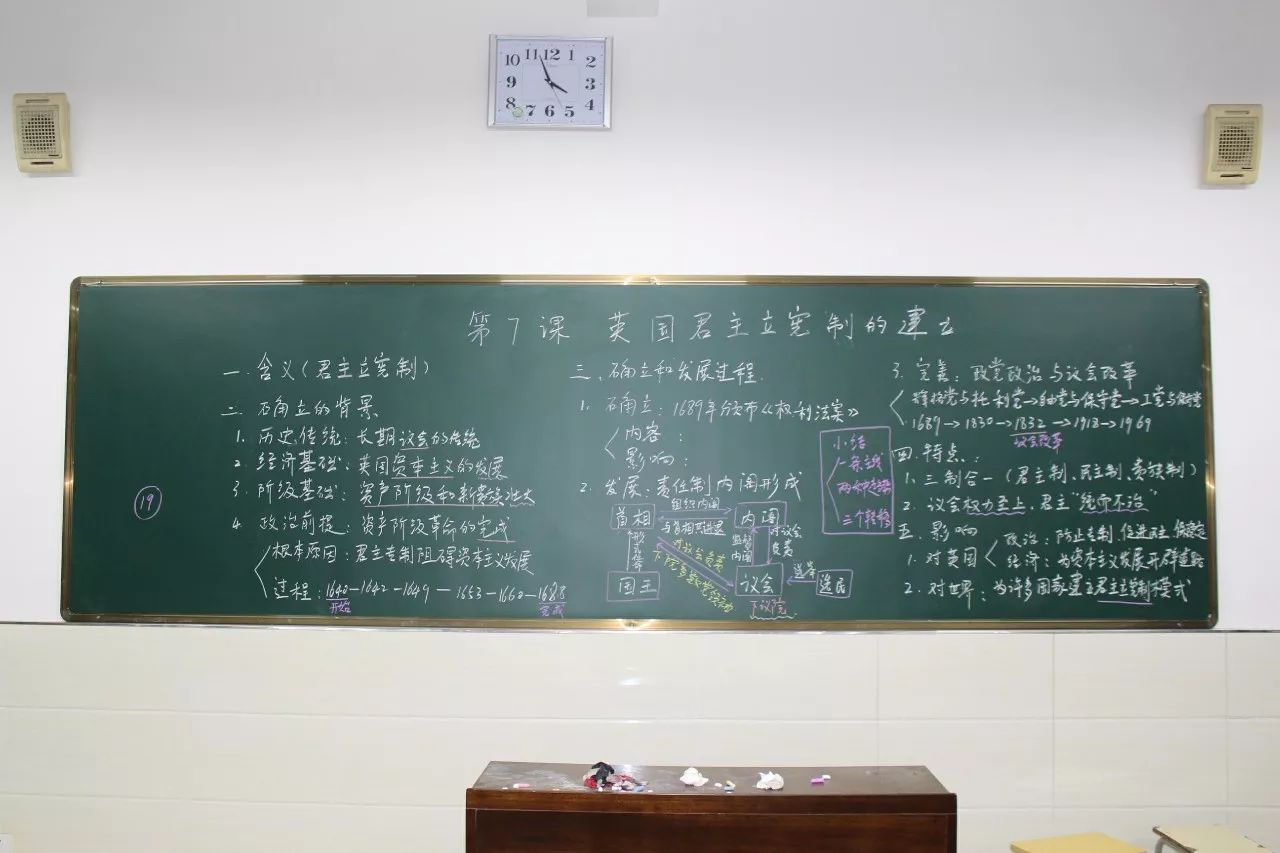 10 11 12 1 2
9 3
8 7 6 5 4
第7课 英国君主立宪制的建立
一.含义(君主立宪制)
二.确立的背景
1.历史传统:长期议会的传统
2.经济基础:英国资本主义的发展
3.阶级基础:资产阶级和新贵族壮大
4.政治前提:资产阶级革命的完成
根本原因:君主专制阻碍资本主义发展
过程:1640—1642—1649—1653—1660—1688
开始 完成
19
三、确立和发展过程.
1.确立:1689年颁布《权利法案》
内容:
影响:
2.发展:责任制内阁形成
首相 组织内阁 内阁
与首相共进退
对议会负责
国王 议会 选举 选民
监督内阁
对议会负责
下议院
小结
一条主线
两种趋势
三个转移
3.完善:政党政治与议会改革
辉格党与托利党→自由党与保守党→工党与保守党
1689→1830→1832→1918→1969
议会改革
四.特点:
1.三制合一(君主制、民主制、贵族制)
2.议会权力至上,君主"统而不治"
五.影响
1.对英国
政治:防止专制,促进民主,
经济:为资本主义发展开辟道路
2.对世界:为许多国家建立君主立宪制模式